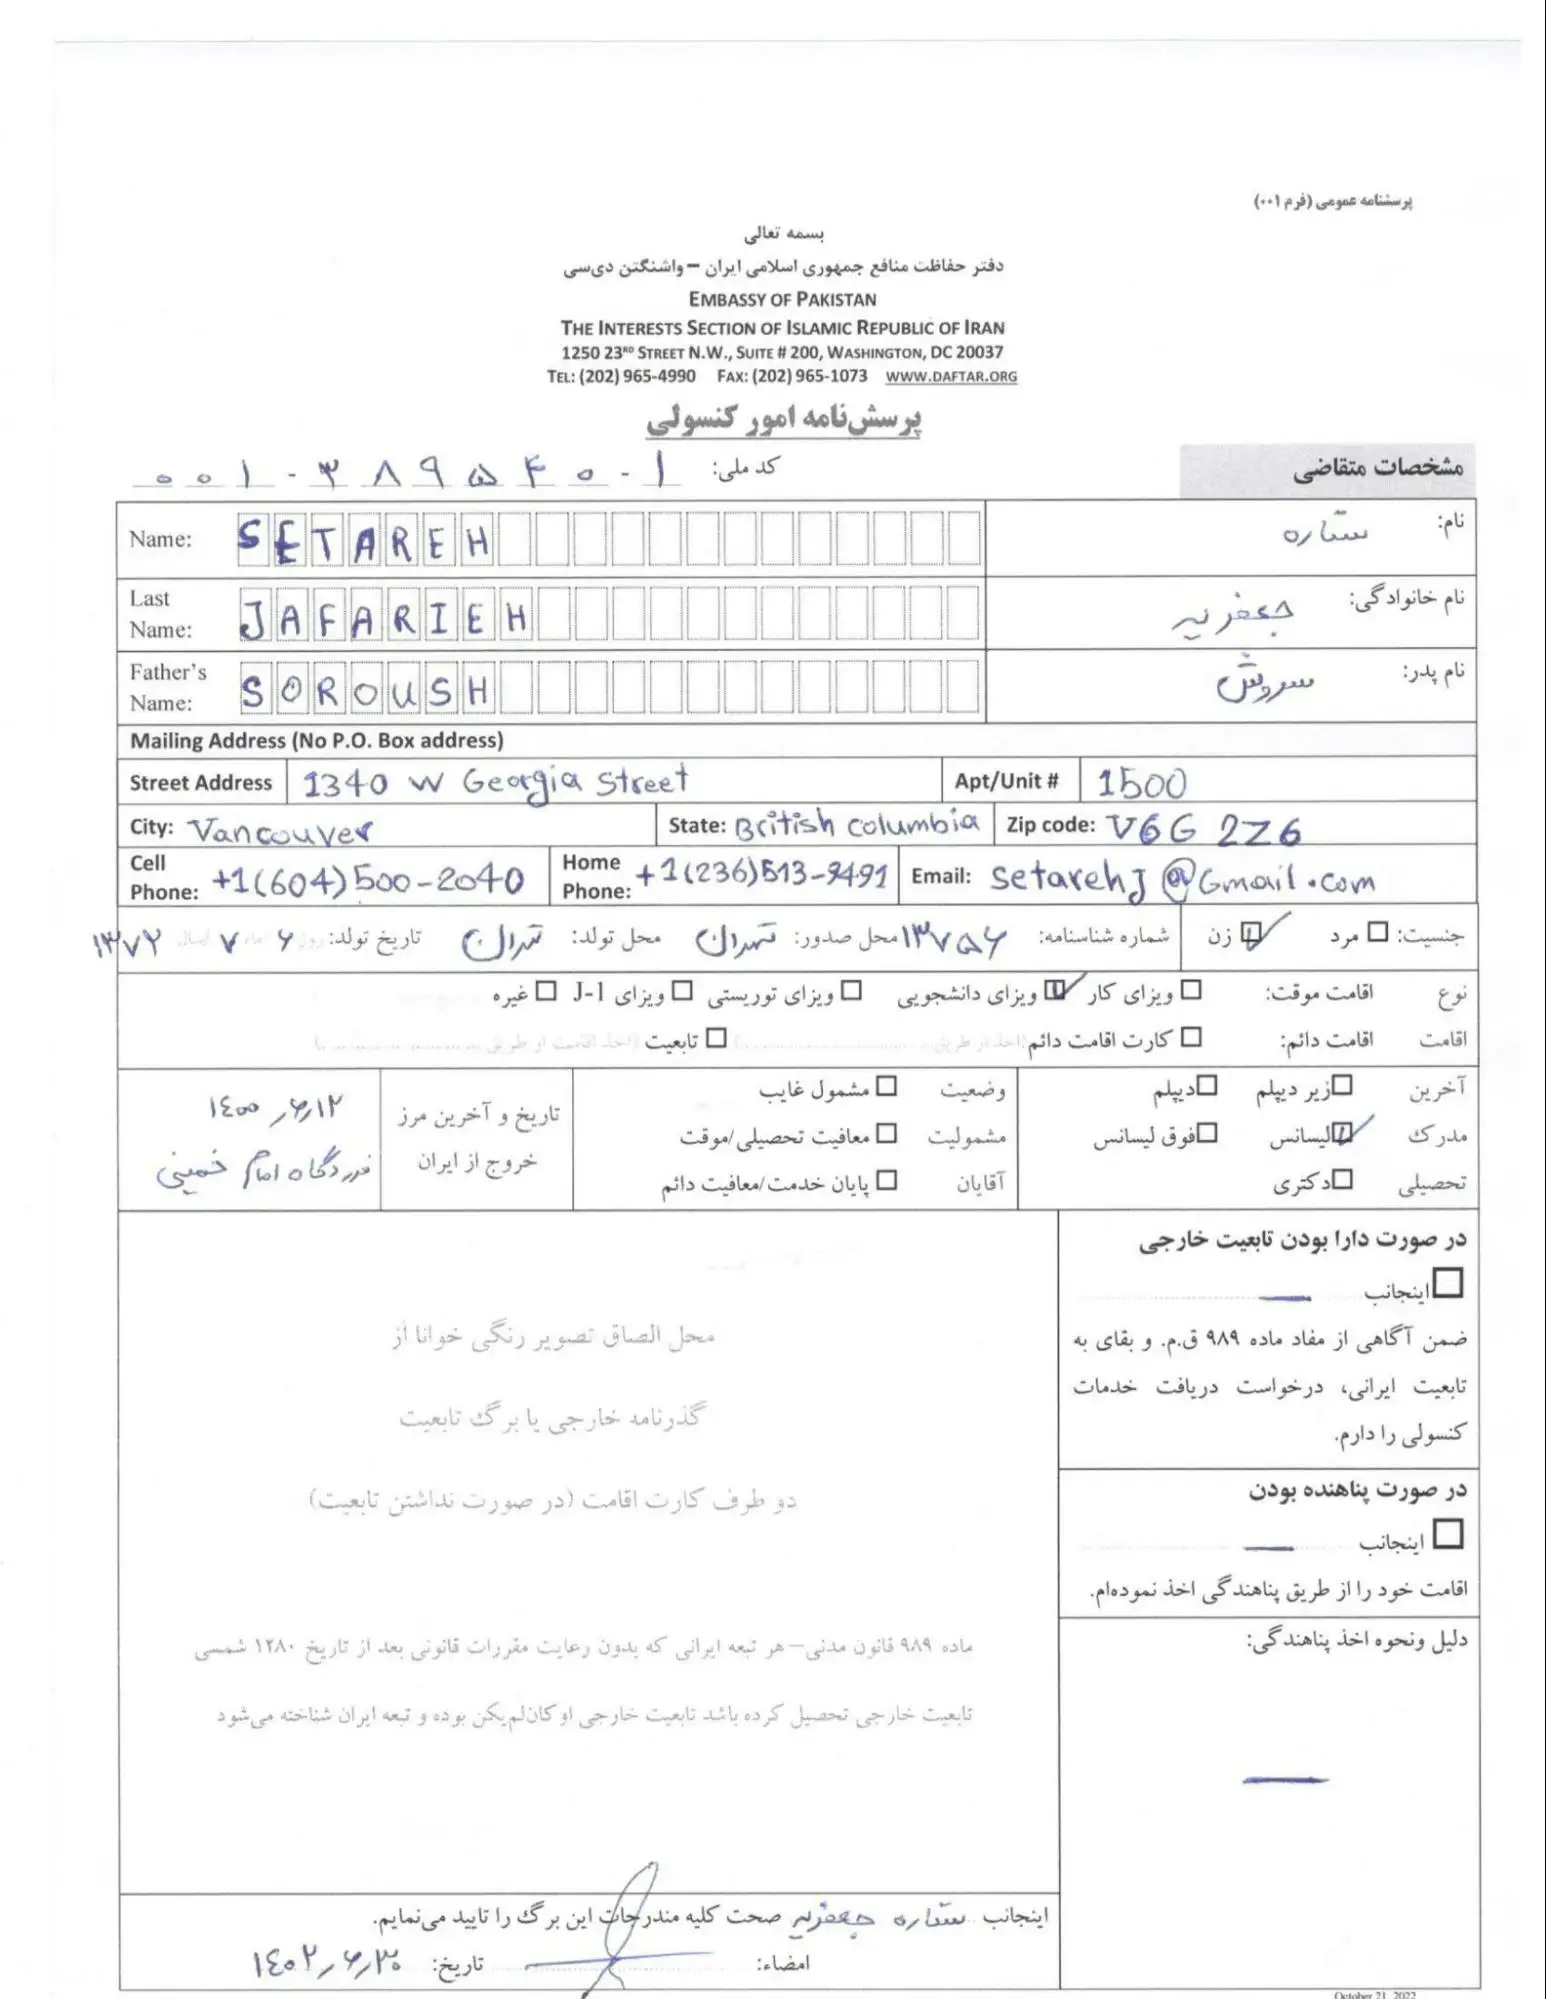 پرسشنامه عمومی (فرم ۰۰۱)
بسمه تعالی
دفتر حفاظت منافع جمهوری اسلامی ایران – واشنگتن دی‌سی
EMBASSY OF PAKISTAN
THE INTERESTS SECTION OF ISLAMIC REPUBLIC OF IRAN
1250 23RD STREET N.W., SUITE # 200, WASHINGTON, DC 20037
TEL: (202) 965-4990 FAX: (202) 965-1073 WWW.DAFTAR.ORG
پرسش‌نامه امور کنسولی
مشخصات متقاضی
کد ملی: ۰۰۱-۳۸۹۵۴۰-۱
نام: ستاره
Name: SETAREH
نام خانوادگی: جعفریه
Last Name: JAFARIEH
نام پدر: سروش
Father's Name: SOROUSH
Mailing Address (No P.O. Box address)
Street Address 1340 W Georgia Street Apt/Unit # 1500
City: Vancouver State: British Columbia Zip code: V6G 2Z6
Cell Phone: +1(604)500-2040 Home Phone: +1(236)513-9491 Email: setarehJ@Gmail.com
جنسیت: مرد زن شماره شناسنامه: ۱۳۷۵۶ محل صدور: تهران محل تولد: تهران تاریخ تولد: روز ۶ ماه ۷ سال ۱۳۷۲
نوع اقامت موقت: ویزای کار ویزای دانشجویی ویزای توریستی ویزای J-1 غیره
اقامت اقامت دائم: کارت اقامت دائم (اخذ از طریق ...) تابعیت (اخذ اقامت از طریق ...)
آخرین زیر دیپلم دیپلم وضعیت مشمول غایب
مدرک لیسانس فوق لیسانس مشمولیت معافیت تحصیلی/موقت
تحصیلی دکتری آقایان پایان خدمت/معافیت دائم
تاریخ و آخرین مرز خروج از ایران ۱۴۰۰/۶/۱۲
فرودگاه امام خمینی
در صورت دارا بودن تابعیت خارجی
اینجانب —
ضمن آگاهی از مفاد ماده ۹۸۹ ق.م. و بقای به
تابعیت ایرانی، درخواست دریافت خدمات
کنسولی را دارم.
محل الصاق تصویر رنگی خوانا از
گذرنامه خارجی یا برگ تابعیت
دو طرف کارت اقامت (در صورت نداشتن تابعیت)
در صورت پناهنده بودن
اینجانب —
اقامت خود را از طریق پناهندگی اخذ نموده‌ام.
دلیل ونحوه اخذ پناهندگی:
—
ماده ۹۸۹ قانون مدنی– هر تبعه ایرانی که بدون رعایت مقررات قانونی بعد از تاریخ ۱۲۸۰ شمسی
تابعیت خارجی تحصیل کرده باشد تابعیت خارجی او کان‌لم‌یکن بوده و تبعه ایران شناخته می‌شود
اینجانب ستاره جعفریه صحت کلیه مندرجات این برگ را تایید می‌نمایم.
امضاء: تاریخ: ۱۴۰۲/۶/۳۰
October 21, 2022